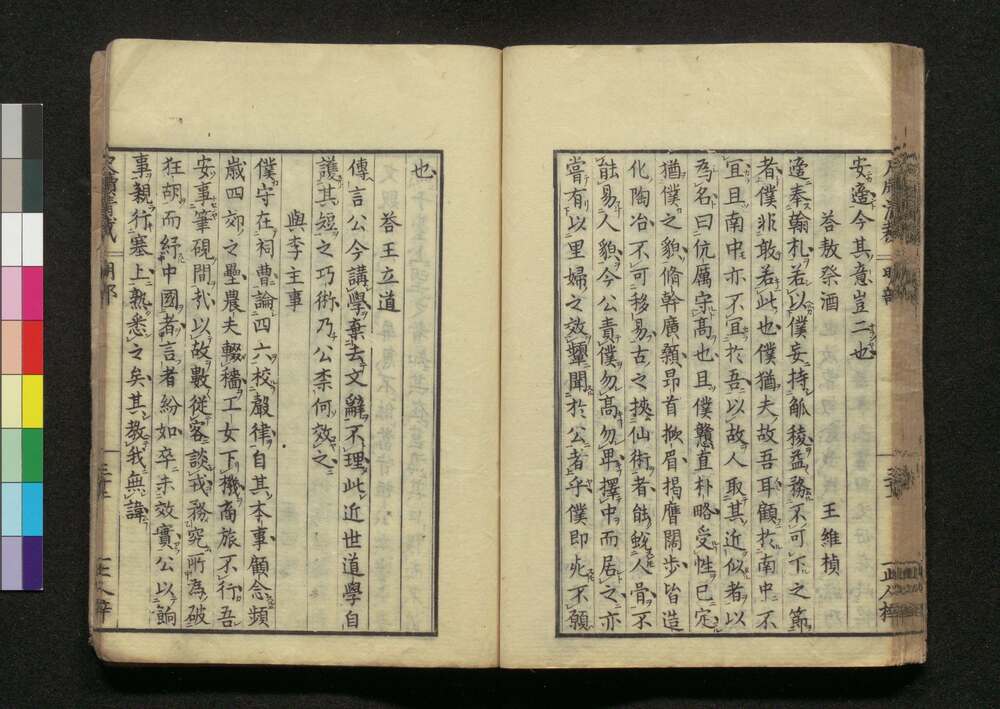 安遼今其意豈二也
荅敖祭酒 王維楨
遼奉翰札若以僕妄持觚稜益務不可下之節
者僕非敢若此也僕猶夫故吾耳顧於南中不
宜且南中亦不宜於吾以故人取其近似者以
為名曰伉厲宗高也且僕戇直朴略受性已定
猶僕之貌脩幹廣顙昂首掀眉揭膺闊步皆造
化陶冶不可移易古之挾仙術者能蛻人骨不
能易人貌今公責僕勿高勿卑擇中而居之亦
嘗有以里婦之效顰聞於公者乎僕即死不願
也
荅王立道
傳言公今講學棄去文辭不理此近世道學自
護其短之巧術乃公柰何效之
與李主事
僕守在祠曹論四六校聲律自其本事顧念頻
歲四郊之壘農夫輟穡工女下機商旅不行吾
安事筆硯間哉以故數從客談戎務究所為破
狂胡而紓中國者言者紛如卒未效實公以餉
事親行塞上熟悉之矣其教我無諱